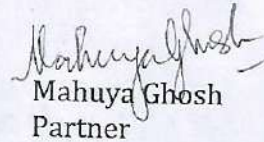 Mahuya Ghosh
Mahuya Ghosh
Partner